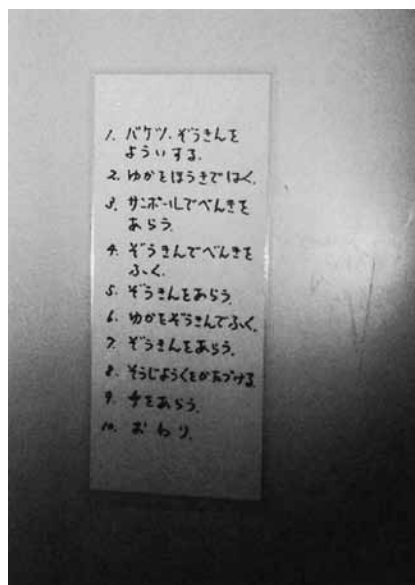 1. バケツ、ぞうきんを
よういする。
2. ゆかをほうきではく。
3. サンポールでべんきを
あらう。
4. ぞうきんでべんきを
ふく。
5. ぞうきんをあらう。
6. ゆかをぞうきんでふく。
7. ぞうきんをあらう。
8. そうじようぐをかたづける。
9. 手をあらう。
10. おわり。